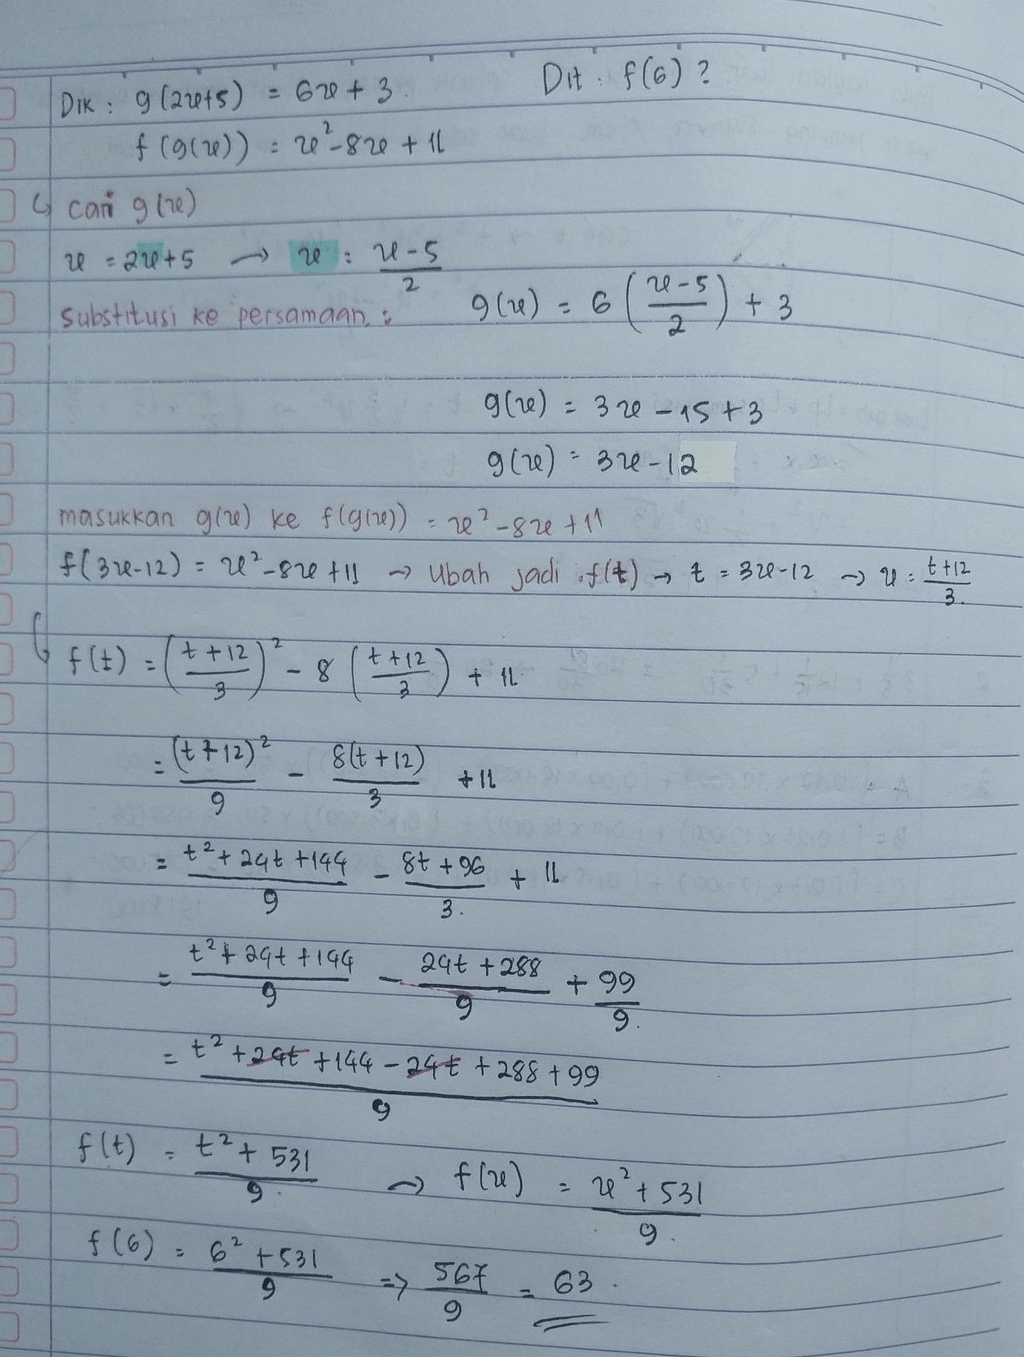 Dik : g(2x+5) = 6x + 3. Dit : f(6) ?
f(g(x)) = x² - 8x + 11
↳ cari g(x)
x = 2x+5 → x : \frac{x-5}{2}
substitusi ke persamaan : g(x) = 6 (\frac{x-5}{2}) + 3
g(x) = 3x - 15 + 3
g(x) = 3x - 12
masukkan g(x) ke f(g(x)) = x² - 8x + 11
f(3x-12) = x² - 8x + 11 → Ubah jadi f(t) → t = 3x - 12 → x : \frac{t+12}{3}.
f(t) = (\frac{t+12}{3})² - 8 (\frac{t+12}{3}) + 11
= \frac{(t+12)²}{9} - \frac{8(t+12)}{3} + 11
= \frac{t² + 24t + 144}{9} - \frac{8t + 96}{3}. + 11
= \frac{t² + 24t + 144}{9} - \frac{24t + 288}{9} + \frac{99}{9}.
= \frac{t² + 24t + 144 - 24t + 288 + 99}{9}
f(t) = \frac{t² + 531}{9}. → f(x) = \frac{x² + 531}{9}.
f(6) = \frac{6² + 531}{9} ⇒ \frac{567}{9} = 63.